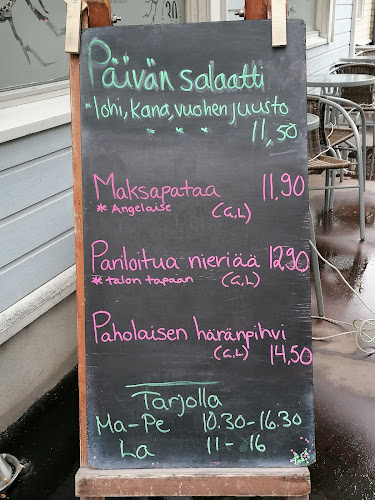 Päivän salaatti
*lohi, kana, vuohenjuusto
* * *
11,50
Maksapataa 11,90
* Angelaise (G,L)
Pariloitua nieriää 12,90
* talon tapaan (G,L)
Paholaisen häränpihvi
(G,L) 14,50
Tarjolla
Ma-Pe 10.30-16.30
La 11-16